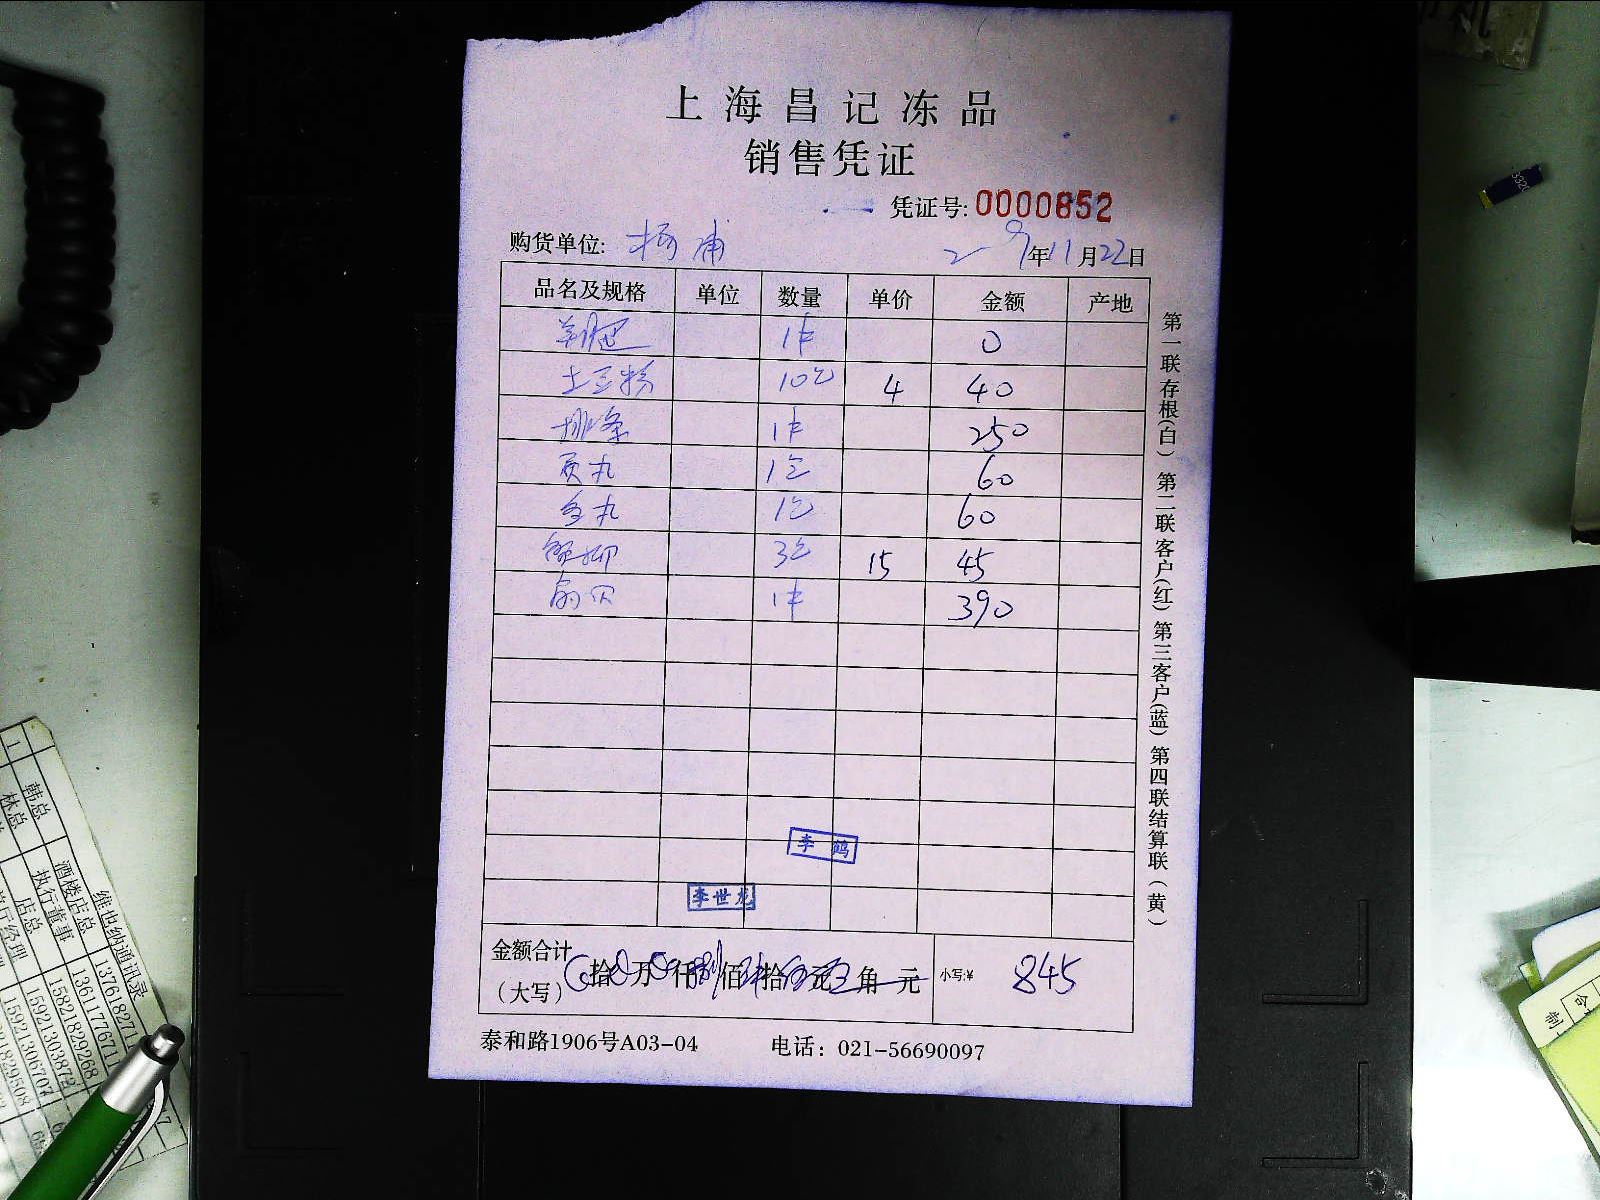 上海昌记冻品
销售凭证
凭证号: 0000652
购货单位: 杨浦 2 9年11月22日
品名及规格 单位 数量 单价 金额 产地
1件 0
土豆粉 10包 4 40
排条 1件 250
贡丸 1包 60
鱼丸 1包 60
3包 15 45
扇贝 1件 390
李鹤
李世龙
金额合计
(大写) 拾 万 仟 捌佰 肆拾 伍元 角 元 小写:¥ 845
泰和路1906号A03-04 电话: 021-56690097
第一联存根(白) 第二联客户(红) 第三客户(蓝) 第四联结算联(黄)
维也纳通讯录
酒楼总
韩总
执行董事
林总
店总